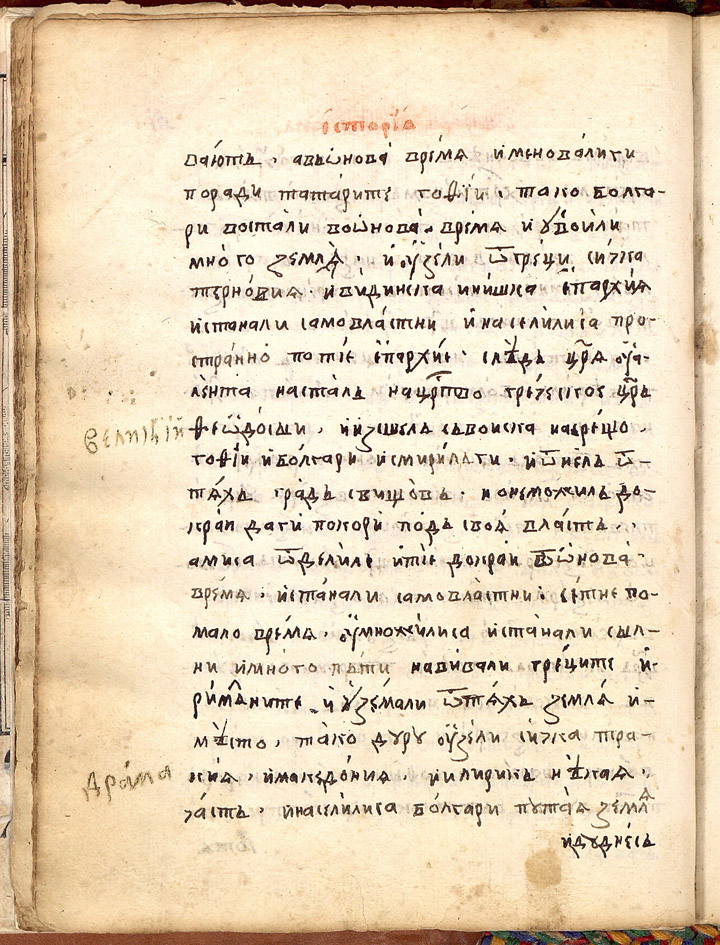 історїа
ваютъ . авьѡнова̀ врѐмѧ именова́лиги
поради татарите готѳи . тако болга-
ри востали воѡнова̀ врѐмѧ и ѹсвоили
много землѧ̀ . и ѹзели ѿ греци сичка
терновиѧ . и видинска и нишка епархиѧ
и станали самовластни и населилиса про-
странно по тие епархїе . слѣдъ цр҃ѧ ѹа-
лента насталь на цр҃ство греческое цр҃ь
великїй
ѳеѡдосїи . и изишелъ съ воиска на срещо
готѳи и болгари и смирилъ ги . и ѿнелъ ѿ
тѧхъ градъ свищовъ . но не можилъ до-
края да ги покори подъ своѧ власть .
амиса ѿделиле и тїе до края воѡнова̀
времѧ . и станали самовластни . сетне по-
мало времѧ . ѹмножилиса и станали сыл-
ни и много пъти надвивали греците и
римлѧните и ѹземали ѿ тѧхъ землѧ и
мѣсто . тако дуру ѹзели сичка тра-
кия . и македония . и илирикъ нѣкаѧ .
драма
часть . и населилиса болгари по таѧ землѧ
и до днесь